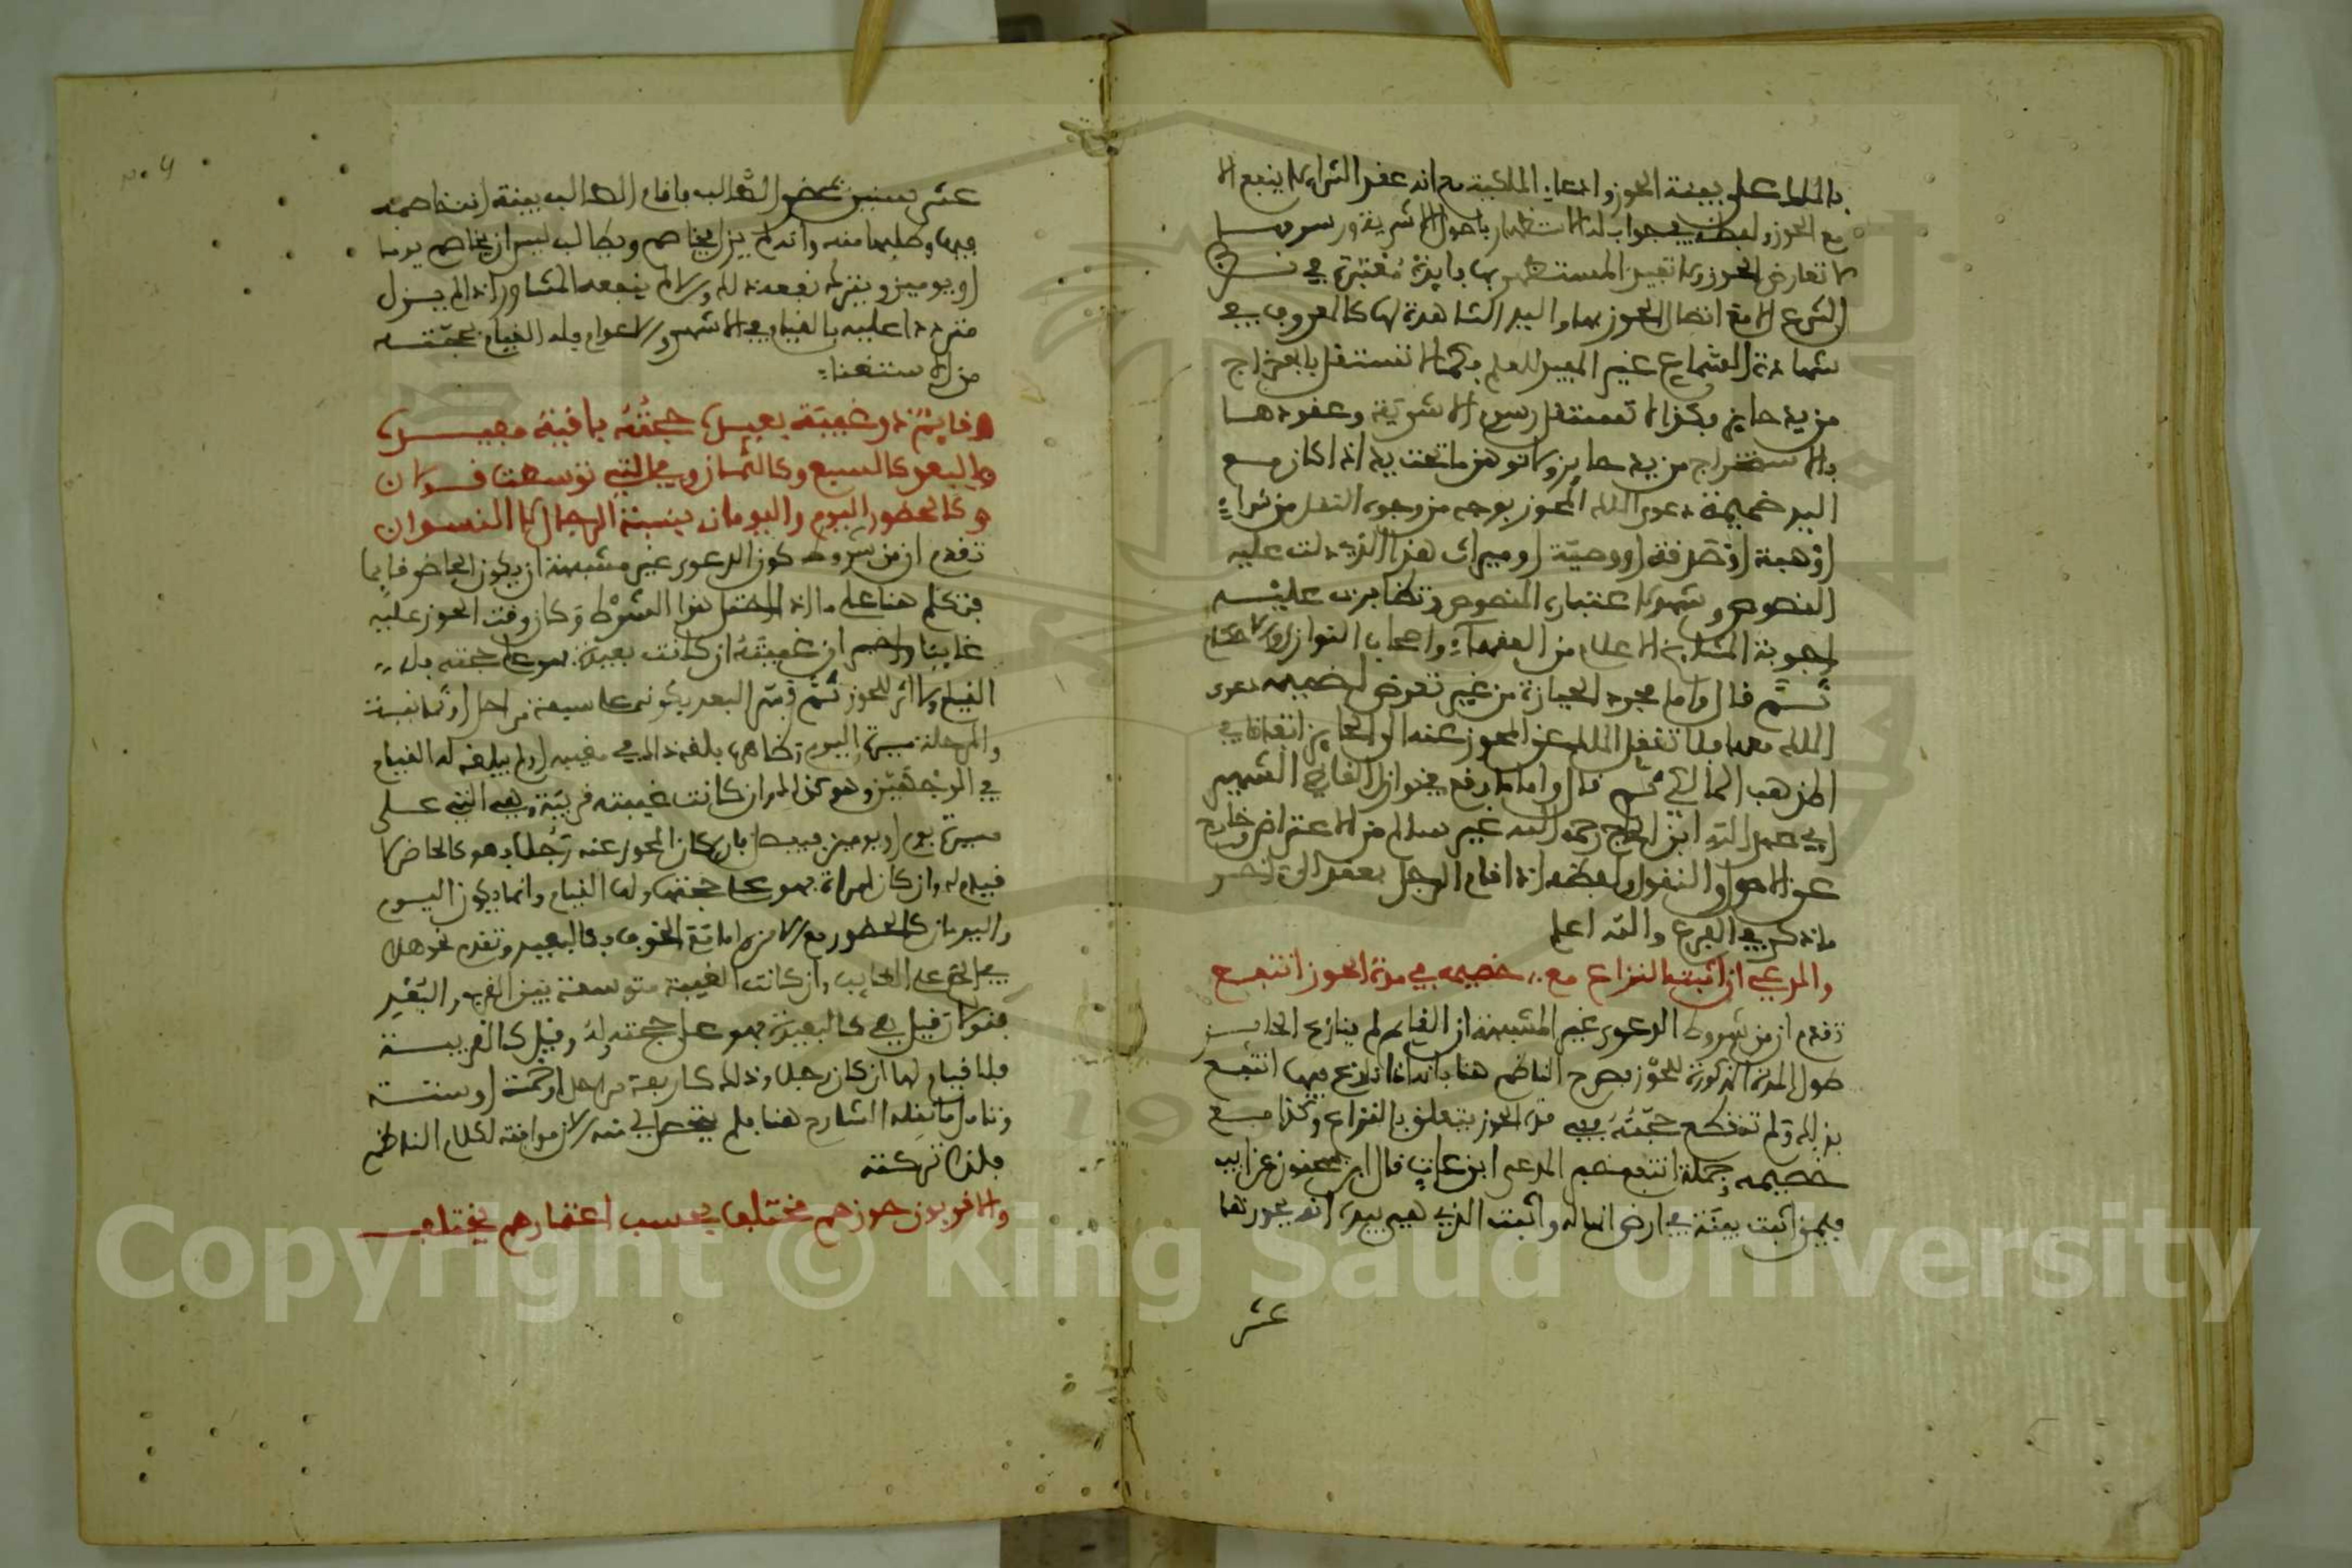 بالملك على بينة الحوز وادعاء الملكية مع انه عقد الشراء لا ينفع الا
مع الحوز ولفظه في جواب له الاستظهار باصول الاشرية ورسومها
لا تعارض الحوز ولا تفيد المستظهر بها فايدة معتبرة في نظر
الشرع الا مع اتصال الحوز بها واليد الشاهدة لها كالمعروف في
شهادة السماع غير المفيد للعلم فكما لا تستقل بالاخراج
من يد حايز فكذا لا تستقل رسوم الاشرية وعقودها
بالاستخراج من يد حايز ولا توهن ما تحت يده اذا كان مع
اليد ضميمة دعوى الملك المحوز بوجه من وجوه النقل من شراء
او هبة او صدقة او وصية او ميراث هذا الذي دلت عليه
النصوص وشهد لاعتباره المنصوص وتظاهرت عليه
اجوبة المشايخ الاعلام من الفقهاء واصحاب النوازل والاحكام
ثم قال واما مجرد الحيازة من غير تعرض لضميمه دعوى
الملك معها فلا تنقل الملك عن المحوز عنه الى الحايز اتفاقا في
المذهب المالكي ثم قال واما ما وقع في نوازل القاضي الشهير
ابي عبد الله ابن الحاج رحمه الله غير سالم من الاعتراض وخارج
عن الاصول والنقول ولفظه اذا قام الرجل بعقد الى اخر
ما ذكر في الفرع والله اعلم
والمدعي ان اثبت النزاع مع خصيمه في مدة الحوز انتفع
تقدم ان من شروط الدعوى غير المشبهة ان القايم لم ينازع الحايز
طول المدة المذكورة للحوز فصرح الناظم هنا بانه اذا نازع فيها انتفع
بذلك ولم تنقطع حجته وفي مدة الحوز يتعلق بالنزاع وكذا مع
خصيمه وجملة انتفع خبر المدعي ابن عات قال ابن سحنون عن ابيه
فيمن اثبت بينة في ارض انها له واثبت الذي هي بيده انه يحوزها
عشر
عشر سنين بمحضر الطالب فاقام الطالب بينة انه خاصمه
فيها وطلبها منه وانه لم يزل يخاصم ويطالب ليس ان يخاصم يوما
او يومين ويترك نفعه ذلك والا لم ينفعه المشاور انه لم يزل
مترددا عليه بالقيام في الاشهر والاعوام فله القيام بحجته
من الاستغناء
وقايم ذو غيبة بعيده حجته باقية مفيده
والبعد كالسبع وكالثمان وفي التي توسطت قولان
وكالحضور اليوم واليومان بنسبة الرجال لا النسوان
تقدم ان من شروط كون الدعوى غير مشبهة ان يكون الحاضر قايما
فتكلم هنا على ما اذا اختل هذا الشرط وكان وقت الحوز عليه
غايبا واخبر ان غيبته ان كانت بعيدة فهو على حجته فله
القيام ولا اثر للحوز ثم فسر البعد بكونه على سبعة مراحل او ثمانية
والمرحلة مسيرة اليوم وظاهره بلغه ذلك في مغيبه او لم يبلغه له القيام
في الوجهين وهو كذلك وان كانت غيبته قريبة وهي التي على
مسيرة يوم او يومين فيبطل بان كان المحوز عنه رجلا فهو كالحاضر لا
قيام له وان كان امراة فهو على حجتها ولها القيام وانما يكون اليوم
واليومان كالحضور مع الامن واما مع الخوف فكالبعيد وتقدم نحو هذا
في الحكم على الغايب وان كانت الغيبة متوسطة بين القرب والبعد
فقولان قيل هي كالبعيدة فهو على حجته وله وقيل كالقريبة
فلا قيام لها ان كان رجلا وذلك كاربعة مراحل او خمسة او ستة
وتامل ما نقله الشارح هنا فلم يتحصل لي منه الان موافقة لكلام الناظم
فلذا تركته
والاقربون حوزهم مختلف بحسب اعتمارهم يختلف